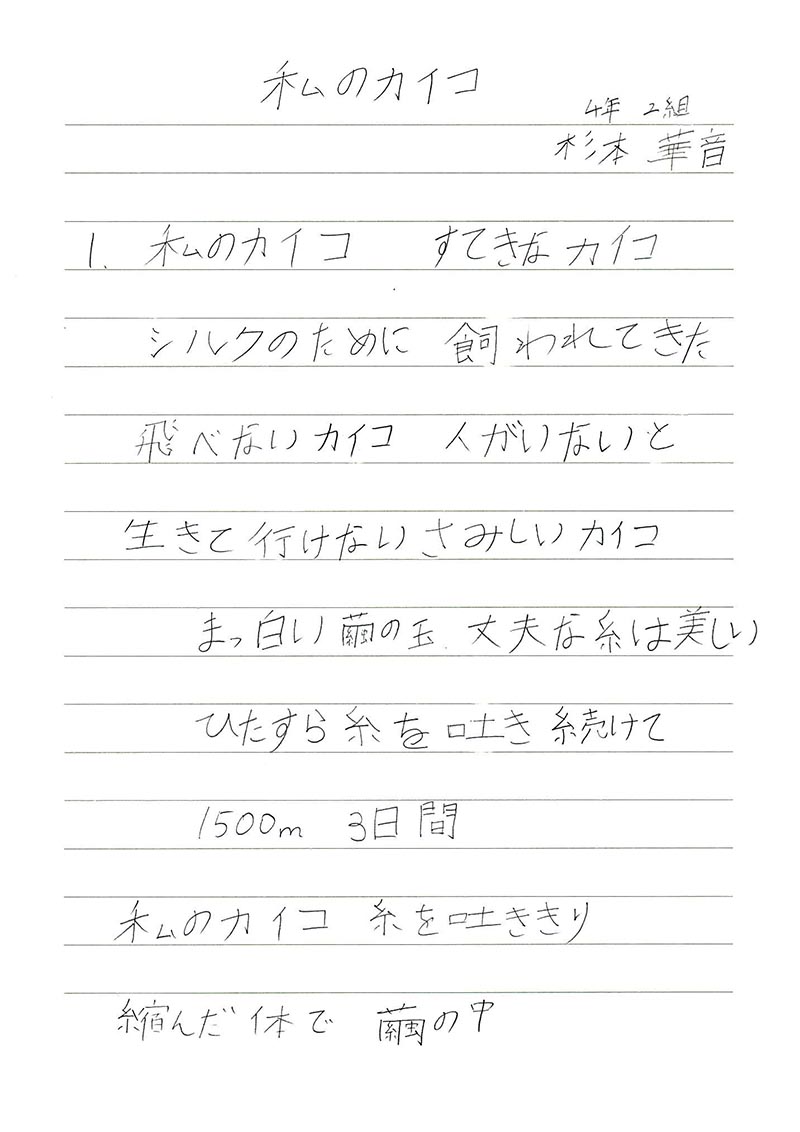 私のカイコ
4年 2組
杉本 華音
1. 私のカイコ すてきなカイコ
シルクのために 飼われてきた
飛べないカイコ 人がいないと
生きて行けないさみしいカイコ
まっ白い繭の玉 丈夫な糸は美しい
ひたすら糸を吐き続けて
1500m 3日間
私のカイコ 糸を吐ききり
縮んだ体で 繭の中